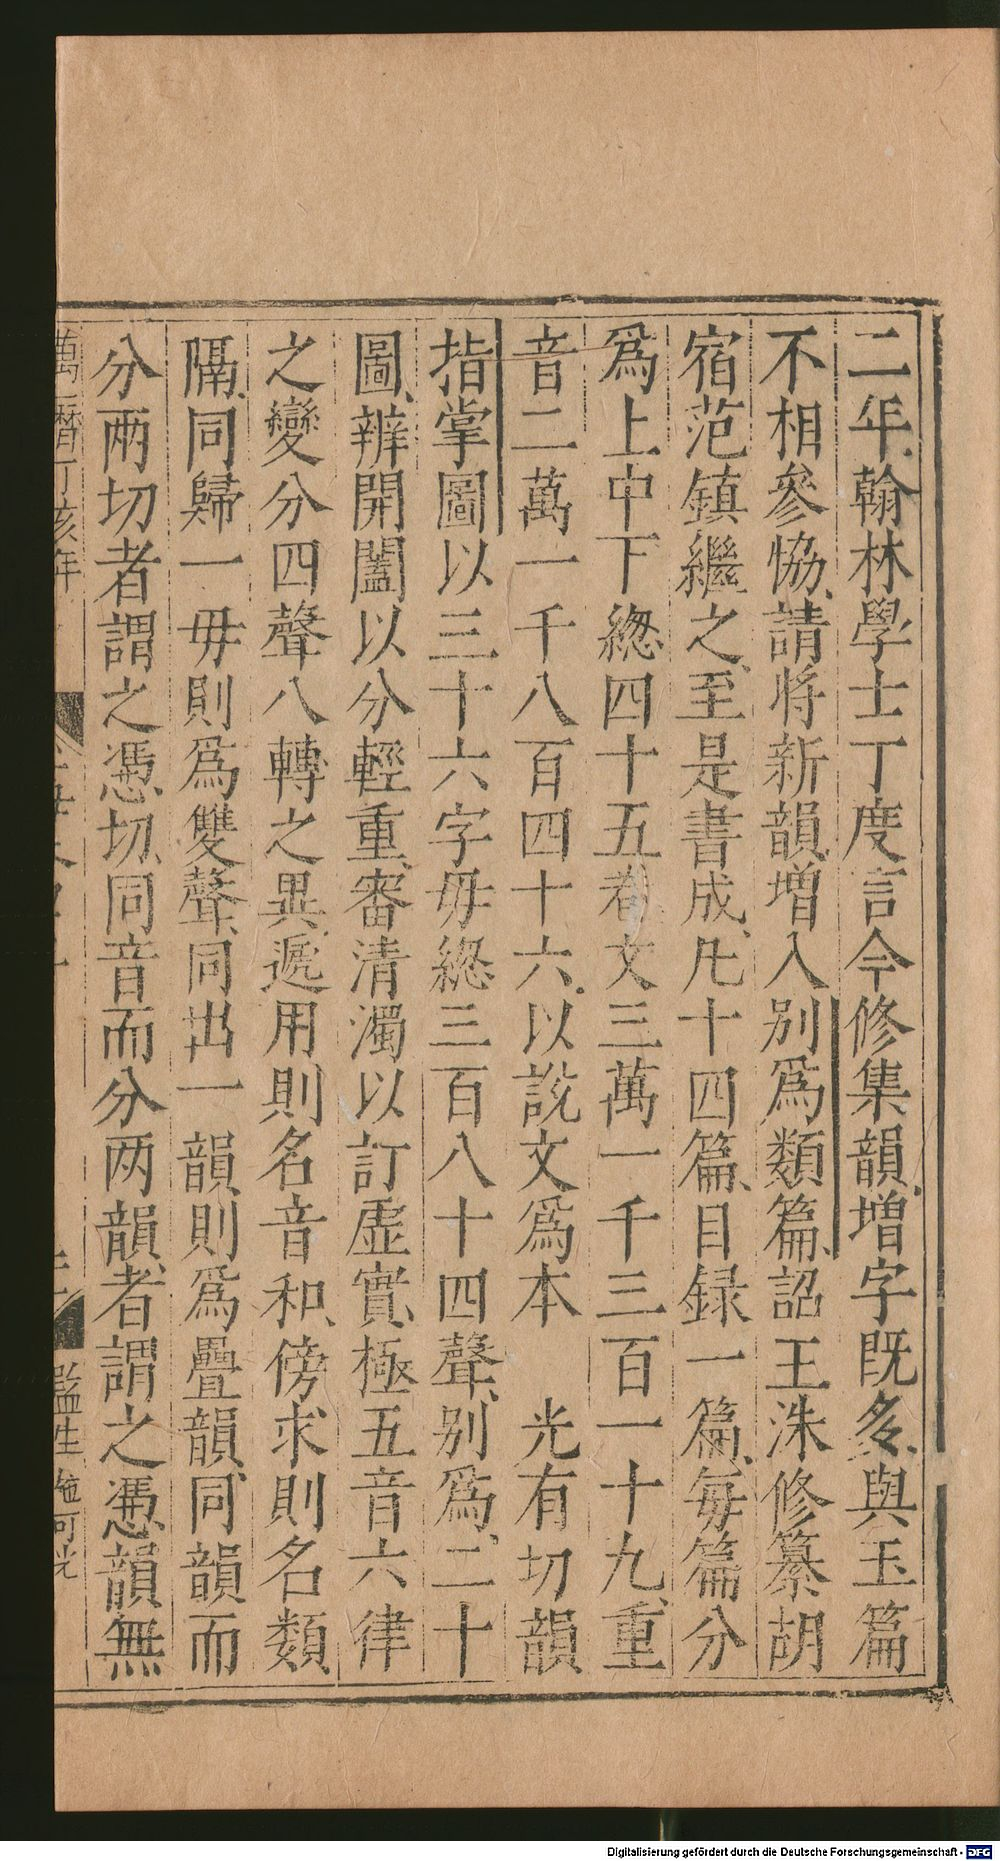 二年翰林學士丁度言今修集韻增字既多與玉篇
不相參恊請将新韻增入别爲類篇詔王洙修纂胡
宿范鎮繼之至是書成凡十四篇目録一篇每篇分
爲上中下緫四十五卷文三萬一千三百一十九重
音二萬一千八百四十六以說文爲本　光有切韻
指掌圖以三十六字毋緫三百八十四聲别爲二十
圖辨開闔以分輕重審清濁以訂虚實極五音六律
之變分四聲八轉之異遞用則名音和傍求則名類
隔同歸一毋則爲雙聲同出一韻則爲疊韻同韻而
分两切者謂之憑切同音而分两韻者謂之憑韻無
萬曆丁亥年
監生施可光
Digitalisierung gefördert durch die Deutsche Forschungsgemeinschaft - DFG